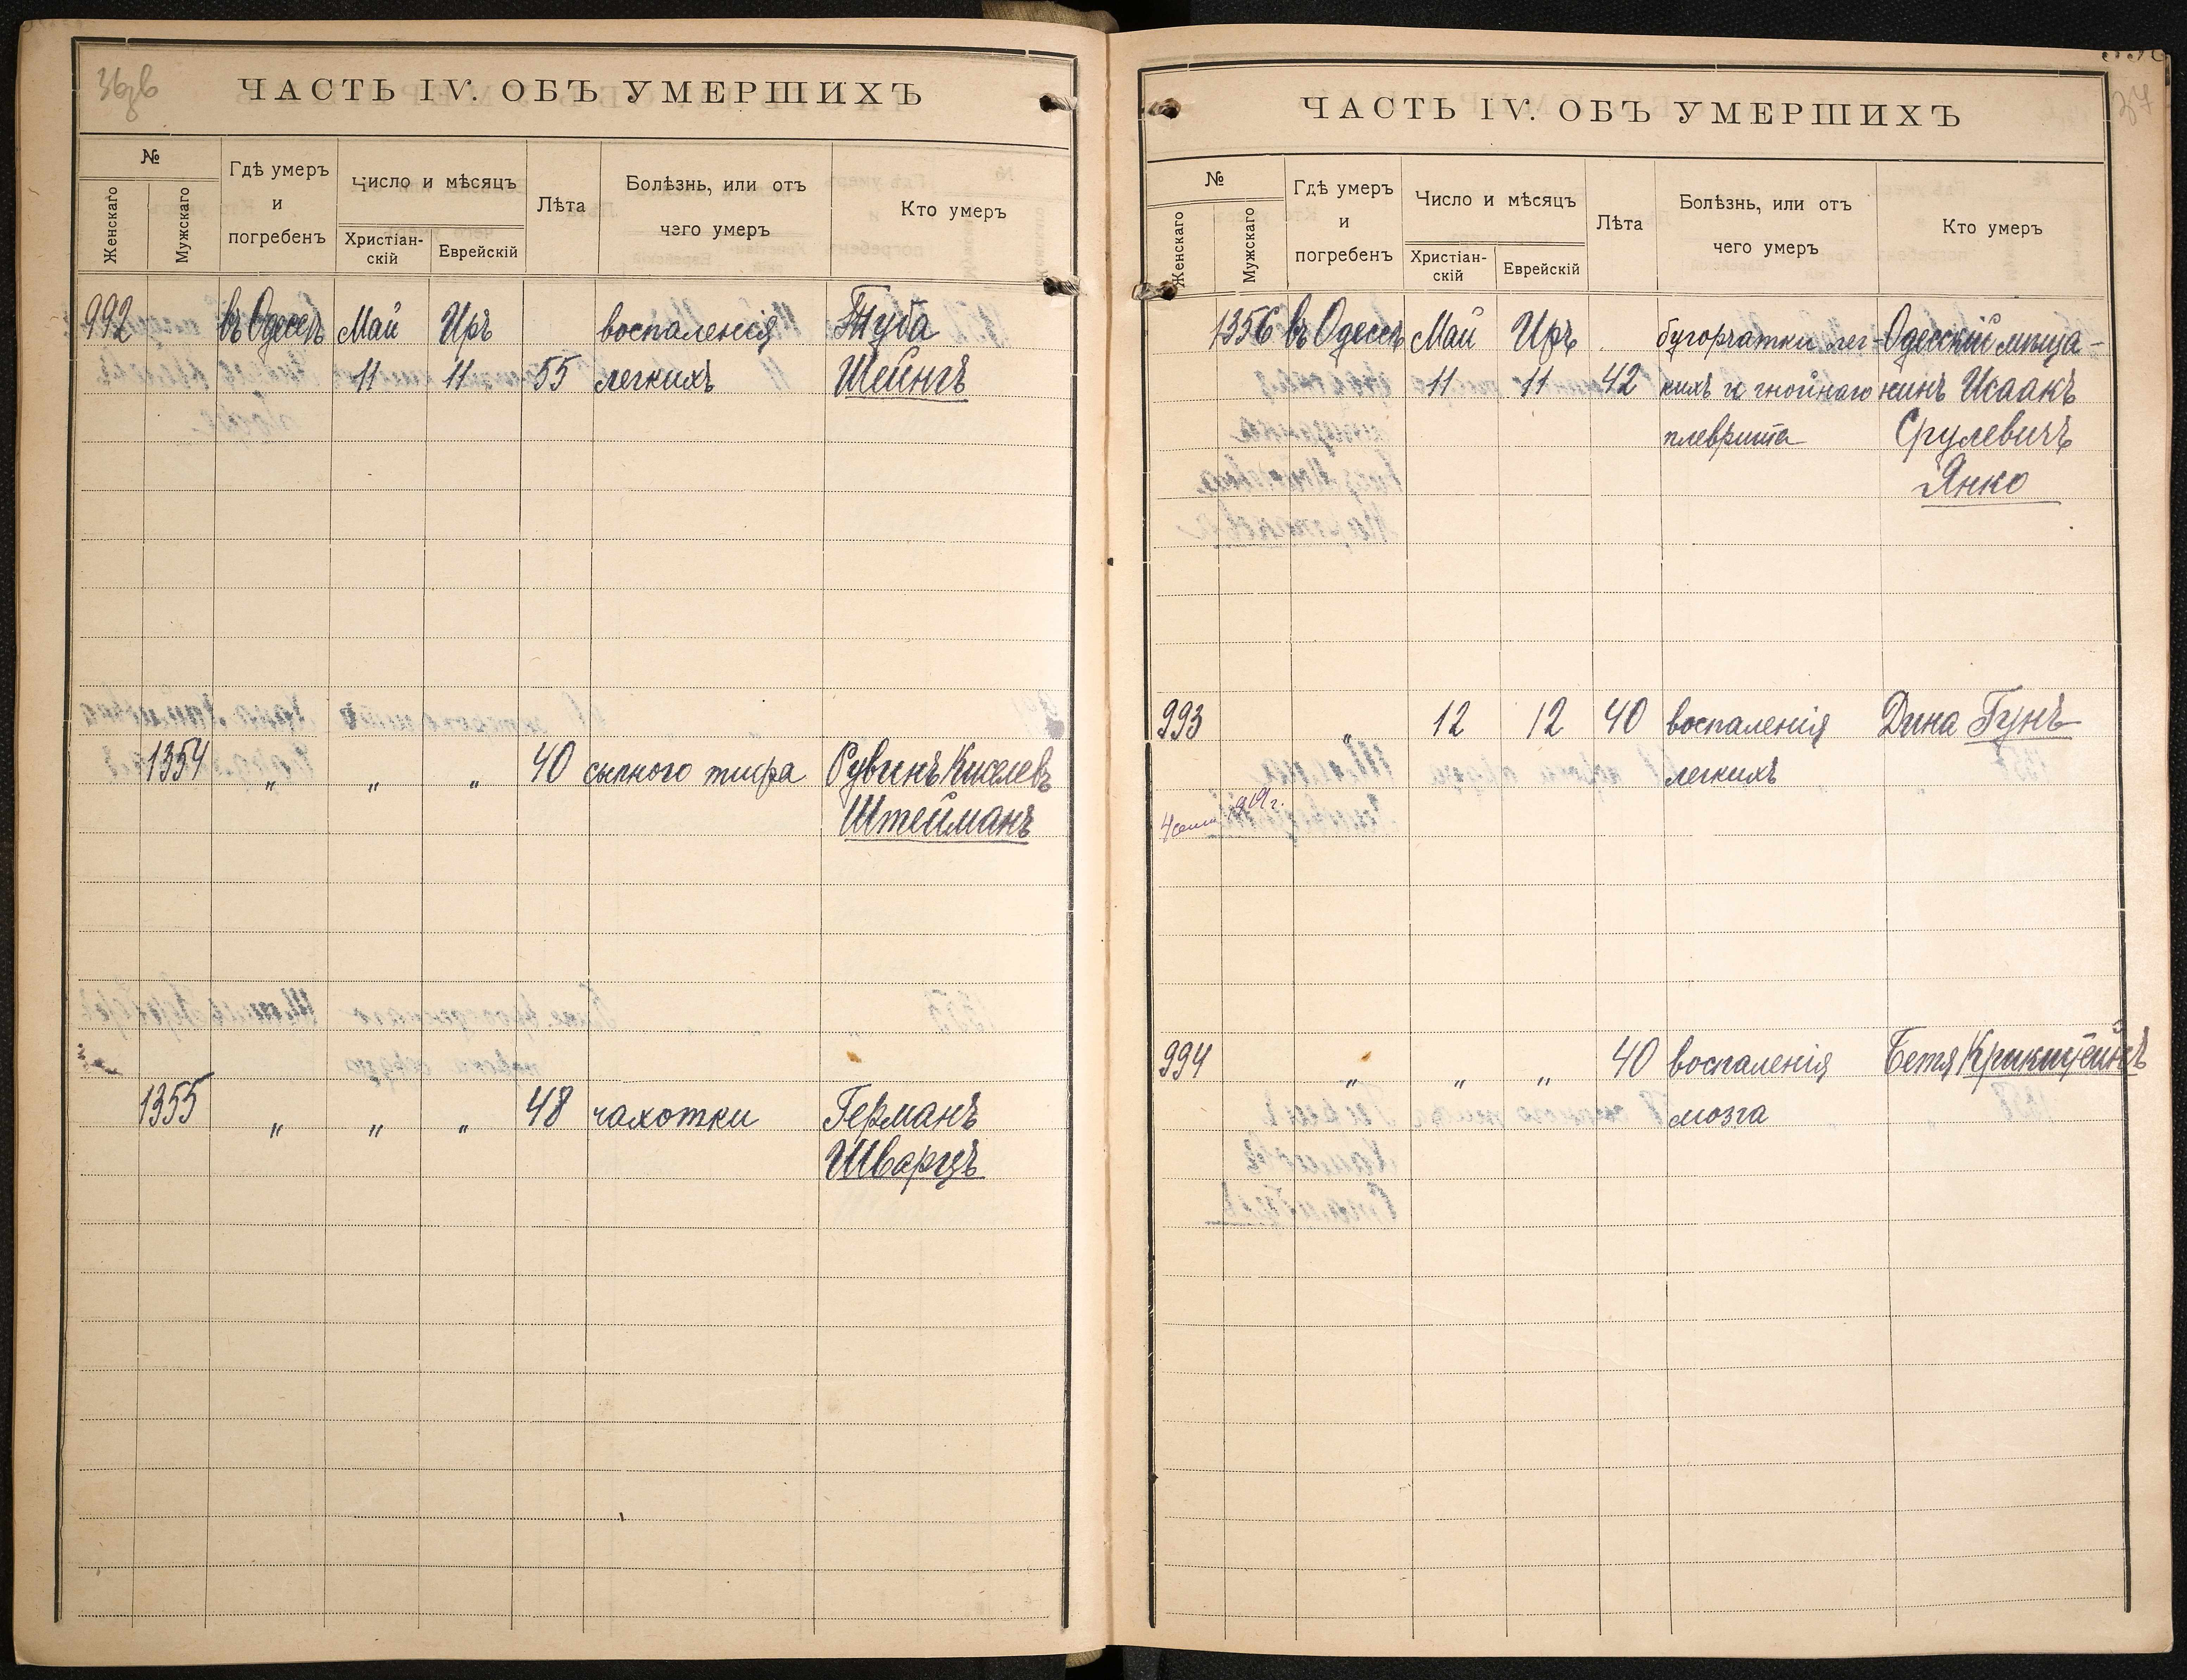 ЧАСТЬ IV. ОБЪ УМЕРШИХЪ
№
Женскаго
Мужскаго
Гдѣ умеръ
и
погребенъ
Число и мѣсяцъ
Христіан-
скій
Еврейскій
Лѣта
Болѣзнь, или отъ
чего умеръ
Кто умеръ
992 въ Одессѣ Май Иръ воспаленія Туба
11 11 55 легкихъ Шейнгъ
1354 „ „ „ 40 сыпного тифа Рувинъ Киселевъ
Штейманъ
1355 „ „ „ 48 чахотки Германъ
Шварцъ
37
ЧАСТЬ IV. ОБЪ УМЕРШИХЪ
№
Женскаго
Мужскаго
Гдѣ умеръ
и
погребенъ
Число и мѣсяцъ
Христіан-
скій
Еврейскій
Лѣта
Болѣзнь, или отъ
чего умеръ
Кто умеръ
1356 въ Одессѣ Май Иръ бугорчатки лег- Одесскій мѣща-
11 11 42 кихъ и гнойнаго нинъ Исаакъ
плеврита Срулевичъ
Янко
993 „ 12 12 40 воспаленія Дина Гунъ
легкихъ
994 „ „ „ 40 воспаленія Бетя Крикштейнъ
мозга